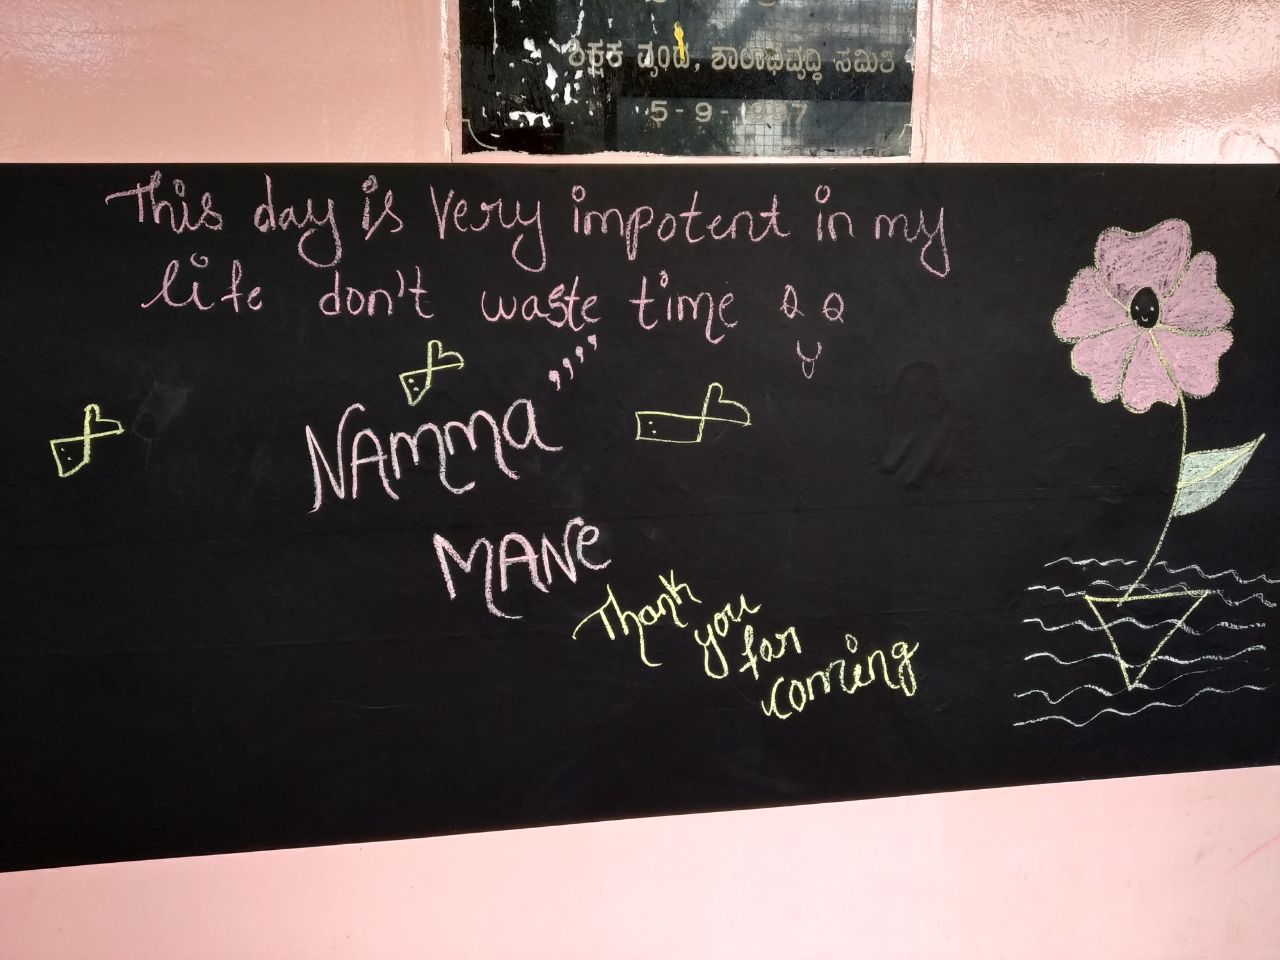 ಶಿಕ್ಷಕ ವೃಂದ, ಶಾಲಾಭಿವೃದ್ಧಿ ಸಮಿತಿ
5-9-1997
This day is very impotent in my
life don't waste time
NAmma
MANe
Thank
you
far
coming